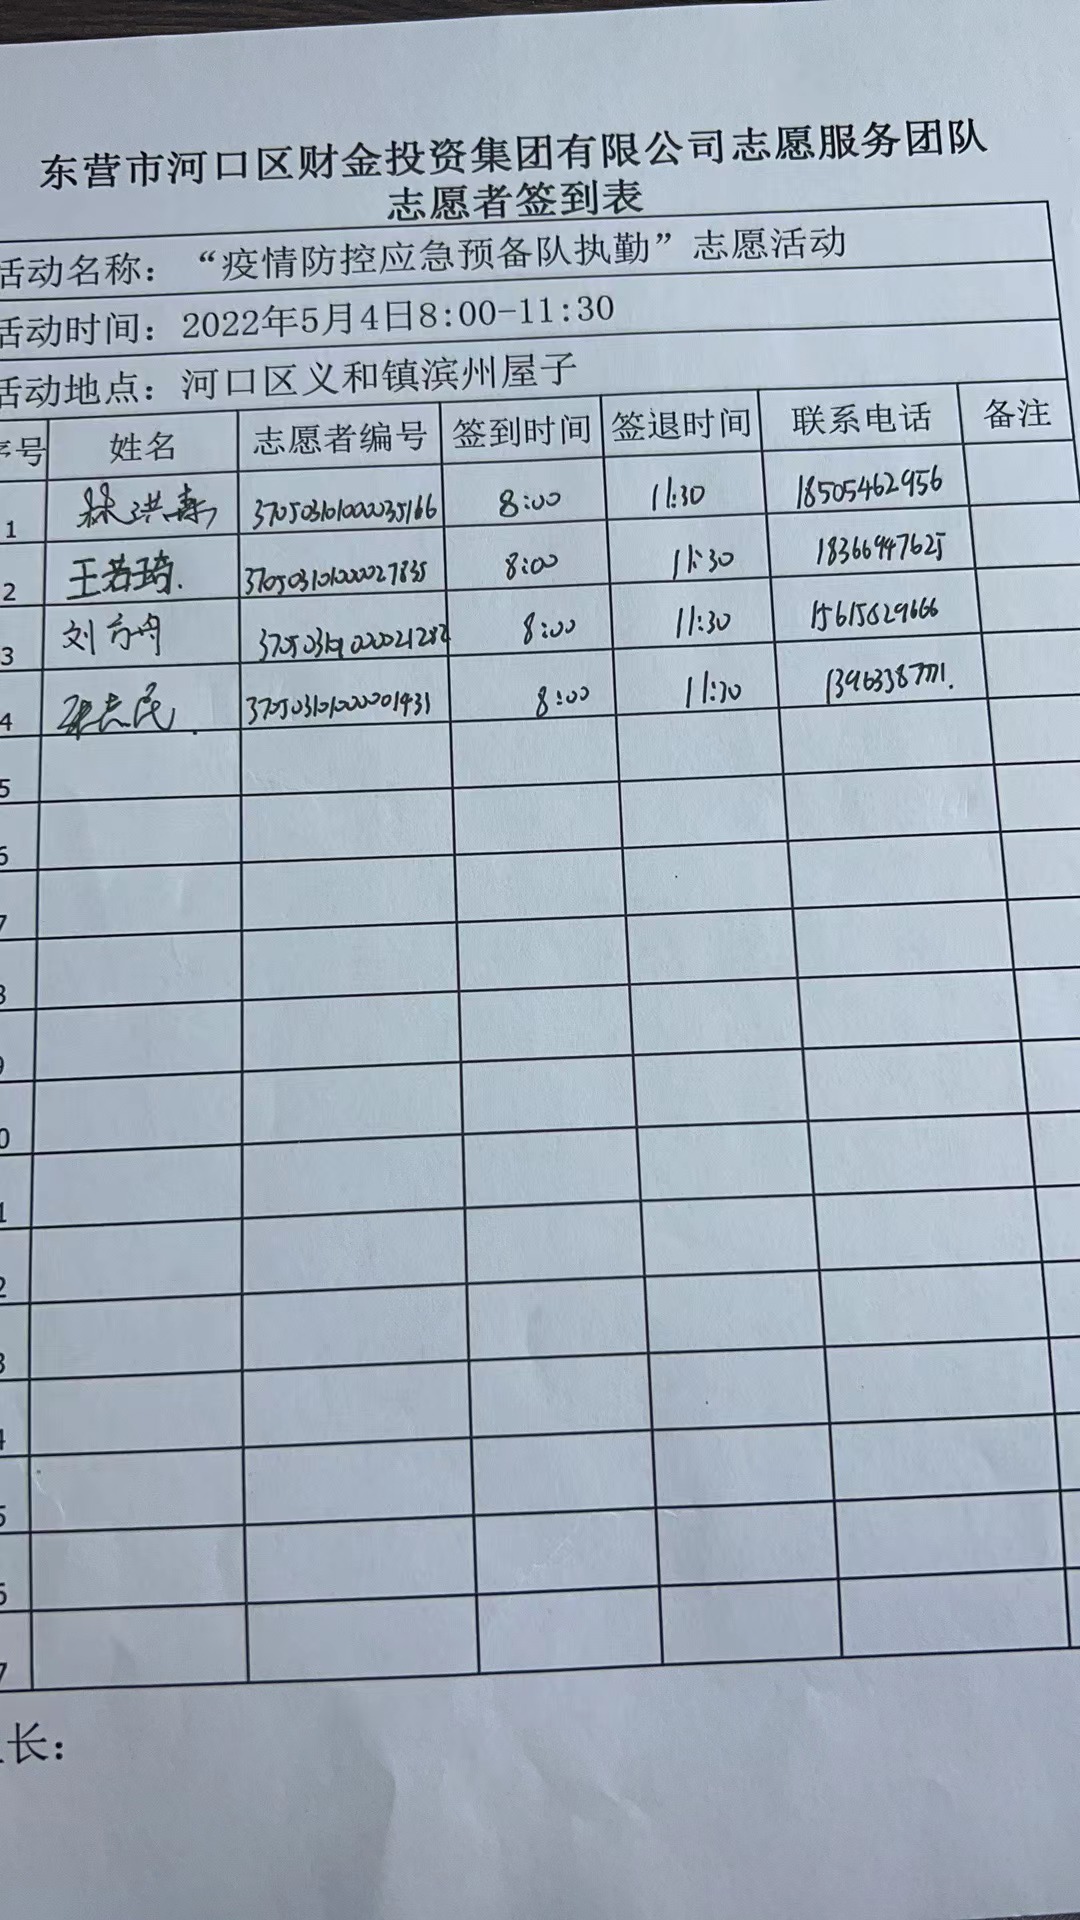 东营市河口区财金投资集团有限公司志愿服务团队
志愿者签到表
活动名称：“疫情防控应急预备队执勤”志愿活动
活动时间：2022年5月4日8:00-11:30
活动地点：河口区义和镇滨州屋子
序号 姓名 志愿者编号 签到时间 签退时间 联系电话 备注
1 8:00 11:30 18505462956
2 王若琦. 8:00 11:30 18366947625
3 刘方舟 8:00 11:30 15615829666
4 张志民. 8:00 11:30
5
6
7
8
9
0
1
2
3
4
5
6
7
长：